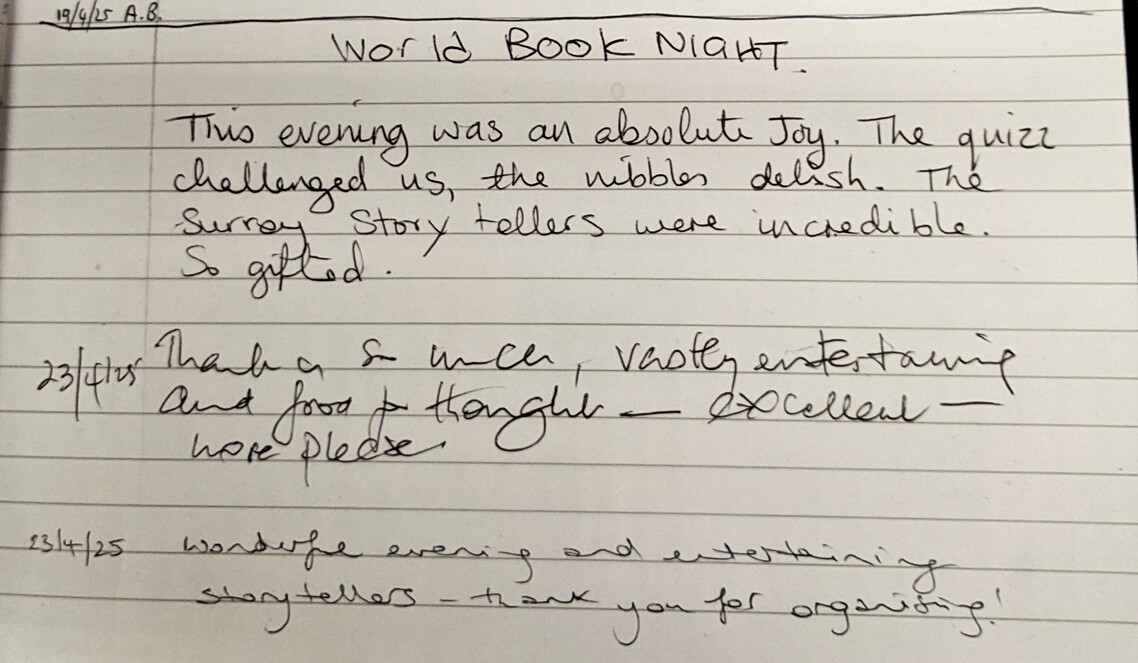 19/4/25 A.B.
World Book Night.
This evening was an absolute Joy. The quizz
challenged us, the nibbles delish. The
Surrey Story tellers were incredible.
So gifted.
23/4/25 Thank you so much, vastly entertaining
and food for thought — excellent —
more please.
23/4/25 Wonderful evening and entertaining
storytellers - thank you for organising!